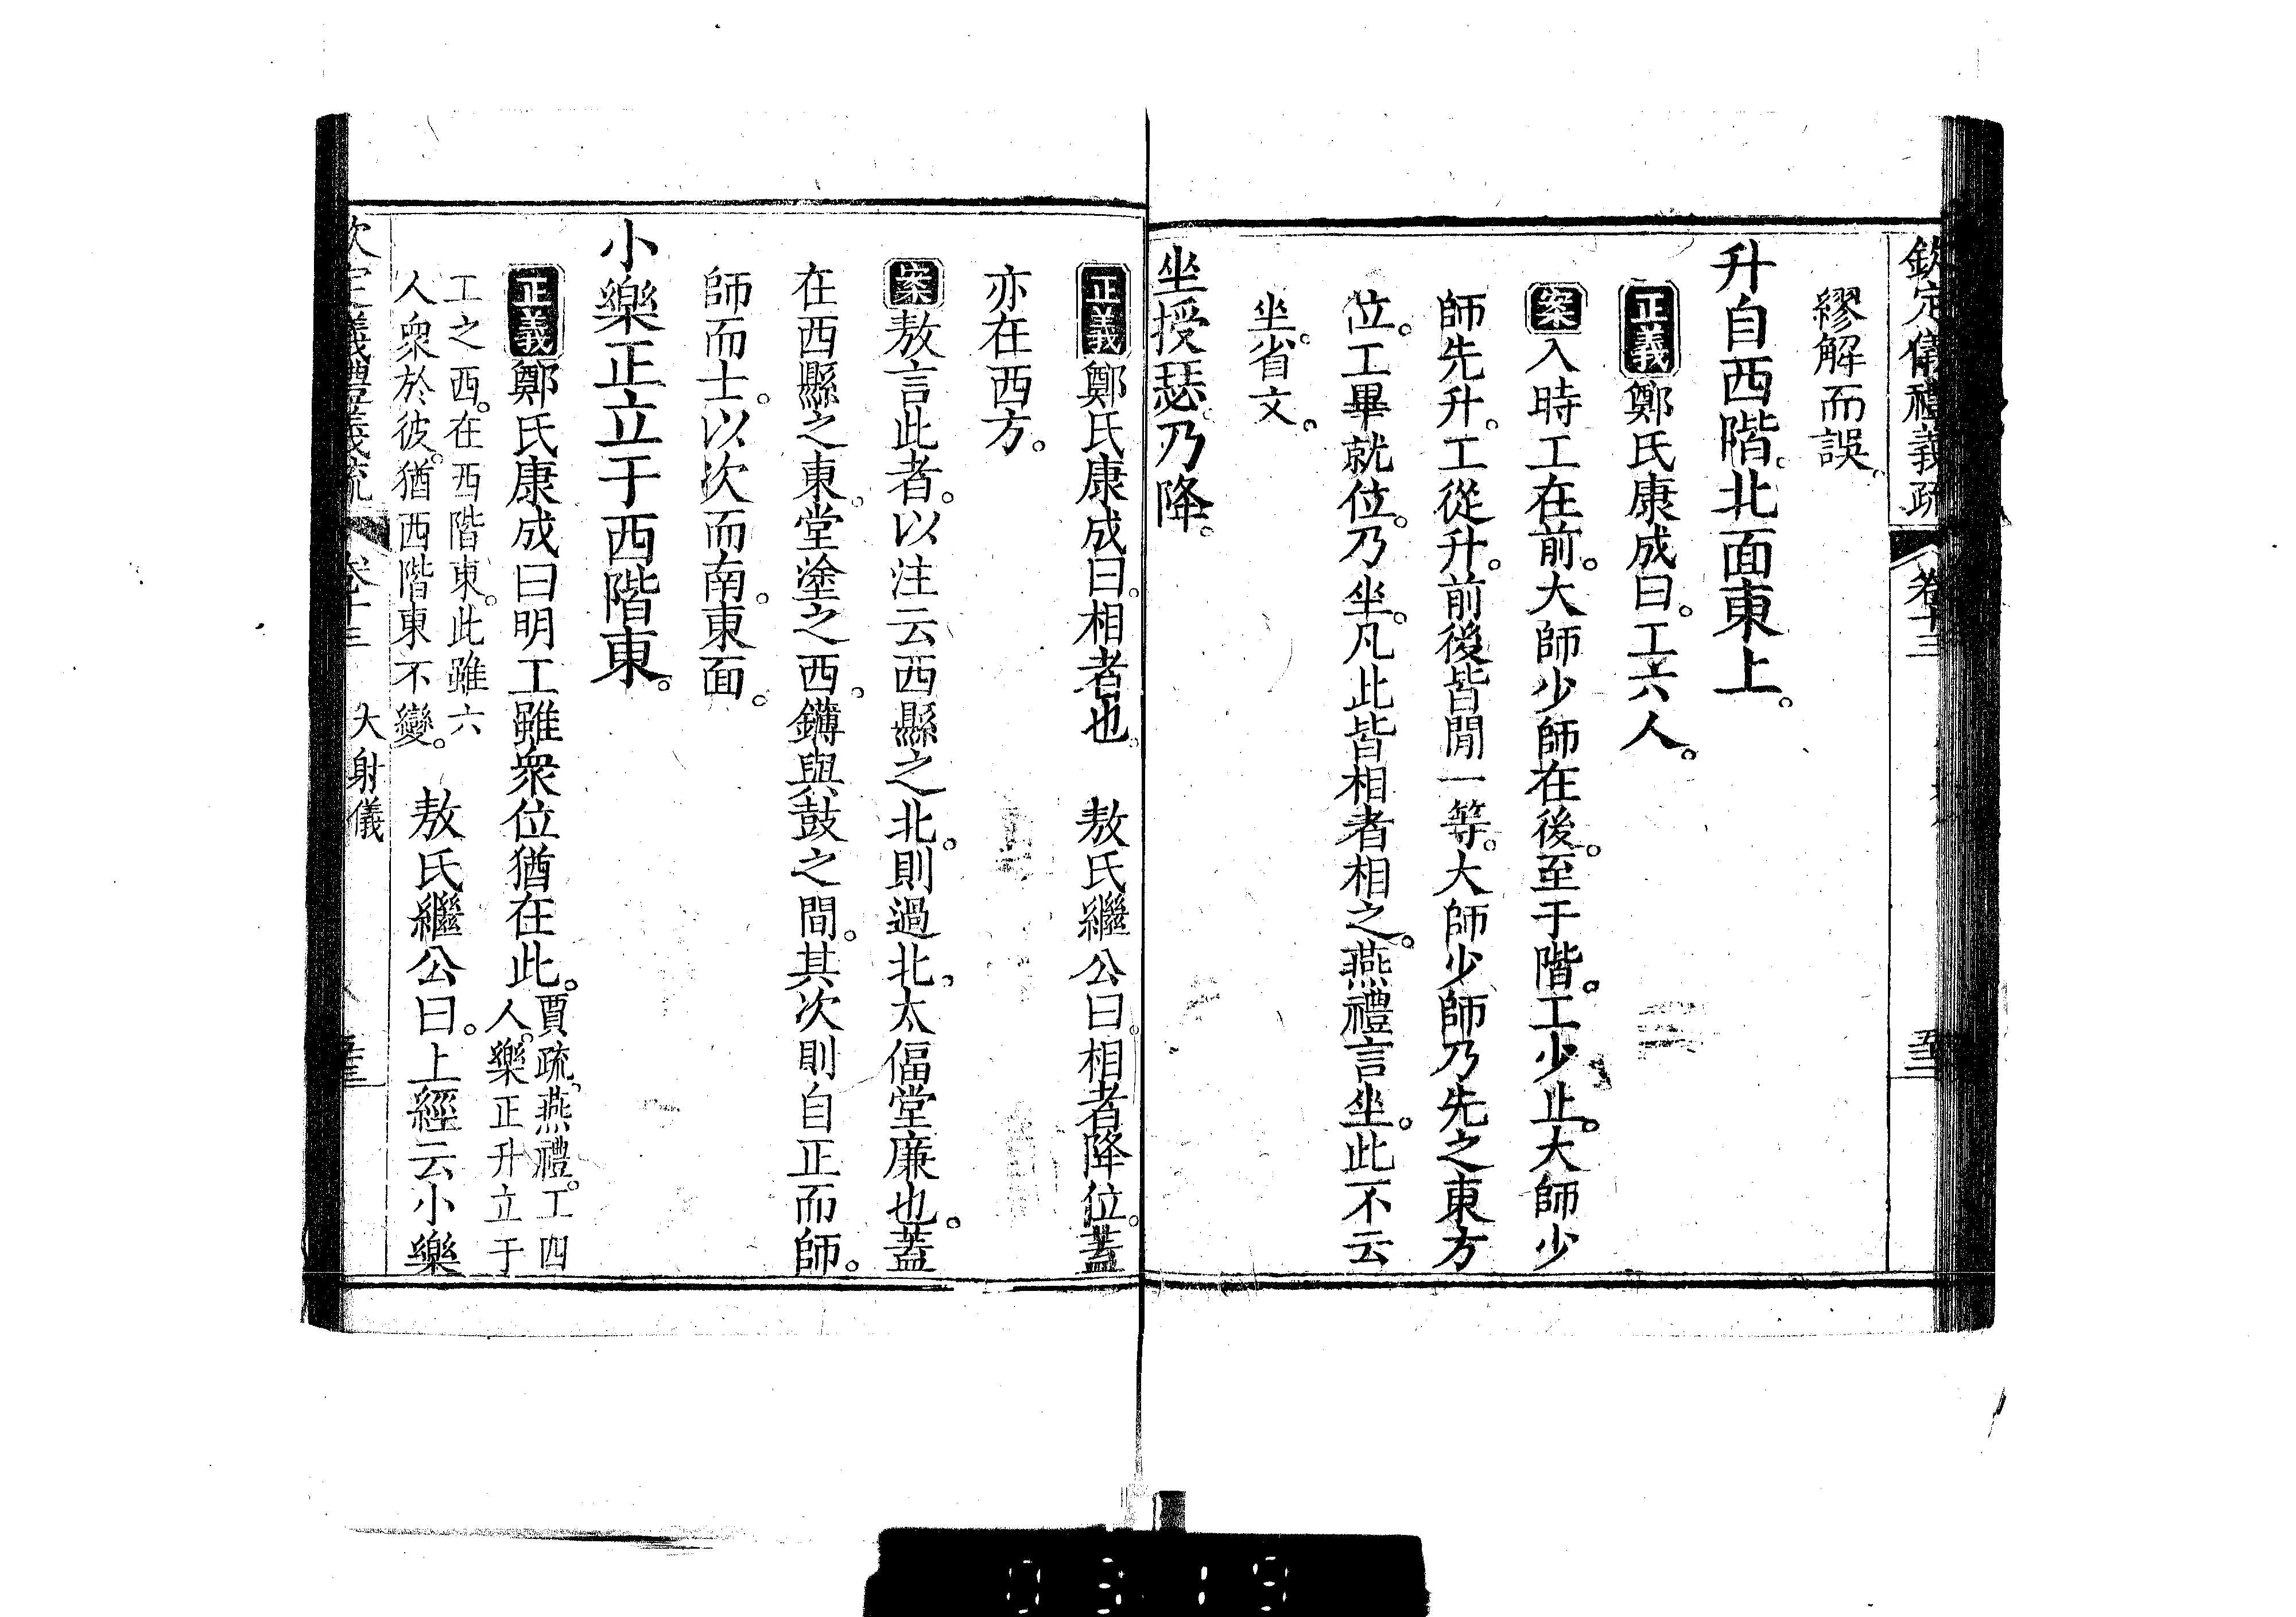 欽定儀禮義疏 卷十三
繆解而誤。
升自西階。北面東上。
正義鄭氏康成曰。工六人。
案入時工在前。大師少師在後。至于階。工少止。大師少
師先升。工從升。前後皆閒一等。大師少師乃先之東方
位。工畢就位。乃坐。凡此皆相者相之。燕禮言坐。此不云
坐。省文。
坐授瑟。乃降。
正義鄭氏康成曰。相者也。 敖氏繼公曰。相者降位。蓋
亦在西方。
案敖言此者。以注云西縣之北。則過北。太偪堂廉也。蓋
在西縣之東。堂塗之西。鑮與鼓之間。其次則自正而師。
師而士。以次而南。東面。
小樂正立于西階東。
正義鄭氏康成曰明工雖衆位猶在此。賈疏。燕禮。工四
人。樂正升立于
工之西。在西階東。此雖六
人衆於彼。猶西階東不變。 敖氏繼公曰。上經云小樂
欽定儀禮義疏 卷十三 大射儀
0319